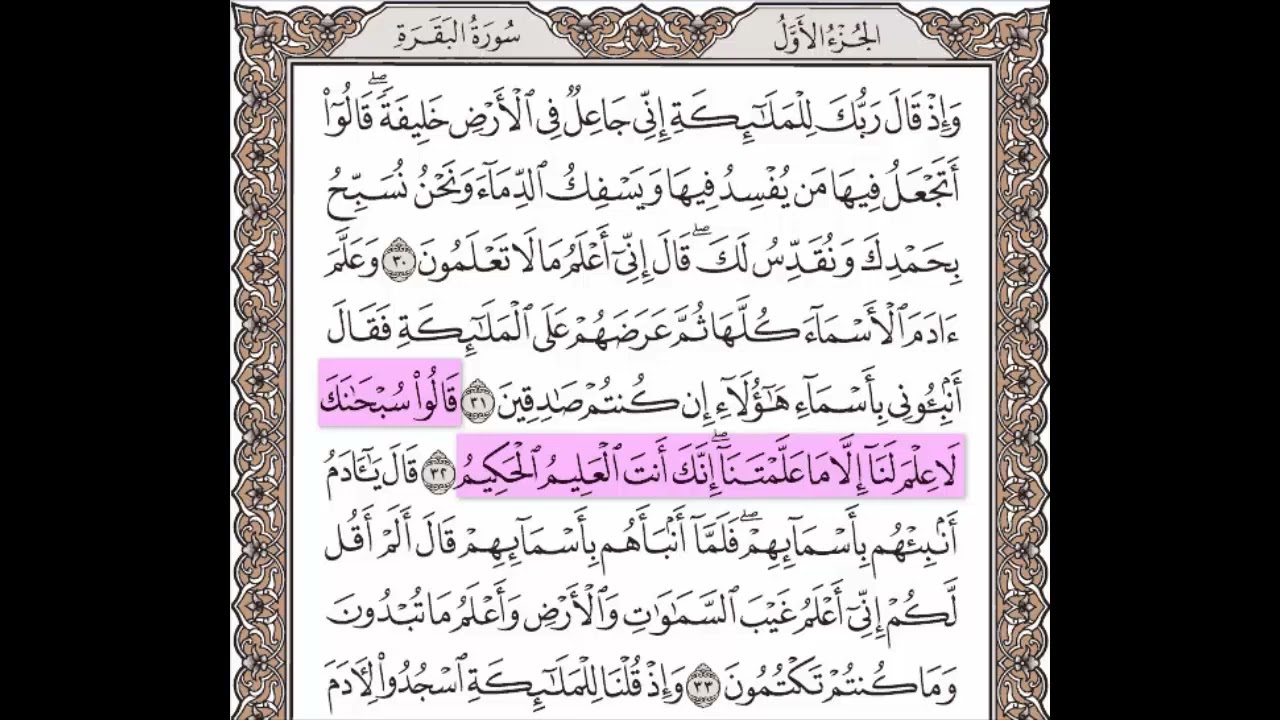 الجُزْءُ الأَوَّلُ
سُورَةُ البَقَرَةِ
وَإِذْ قَالَ رَبُّكَ لِلْمَلَٰٓئِكَةِ إِنِّى جَاعِلٌ فِى ٱلْأَرْضِ خَلِيفَةً ۖ قَالُوٓا۟
أَتَجْعَلُ فِيهَا مَن يُفْسِدُ فِيهَا وَيَسْفِكُ ٱلدِّمَآءَ وَنَحْنُ نُسَبِّحُ
بِحَمْدِكَ وَنُقَدِّسُ لَكَ ۖ قَالَ إِنِّىٓ أَعْلَمُ مَا لَا تَعْلَمُونَ ٣٠ وَعَلَّمَ
ءَادَمَ ٱلْأَسْمَآءَ كُلَّهَا ثُمَّ عَرَضَهُمْ عَلَى ٱلْمَلَٰٓئِكَةِ فَقَالَ
أَنۢبِـُٔونِى بِأَسْمَآءِ هَٰٓؤُلَآءِ إِن كُنتُمْ صَٰدِقِينَ ٣١ قَالُوا۟ سُبْحَٰنَكَ
لَا عِلْمَ لَنَآ إِلَّا مَا عَلَّمْتَنَآ ۖ إِنَّكَ أَنتَ ٱلْعَلِيمُ ٱلْحَكِيمُ ٣٢ قَالَ يَٰٓـَٔادَمُ
أَنۢبِئْهُم بِأَسْمَآئِهِمْ ۖ فَلَمَّآ أَنۢبَأَهُم بِأَسْمَآئِهِمْ قَالَ أَلَمْ أَقُل
لَّكُمْ إِنِّىٓ أَعْلَمُ غَيْبَ ٱلسَّمَٰوَٰتِ وَٱلْأَرْضِ وَأَعْلَمُ مَا تُبْدُونَ
وَمَا كُنتُمْ تَكْتُمُونَ ٣٣ وَإِذْ قُلْنَا لِلْمَلَٰٓئِكَةِ ٱسْجُدُوا۟ لِءَادَمَ